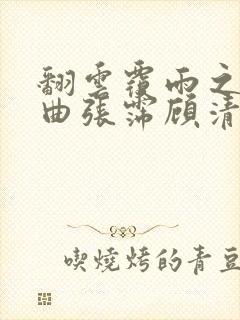 翻雲覆雨之
曲張霈顧清
喫燒烤的青豆